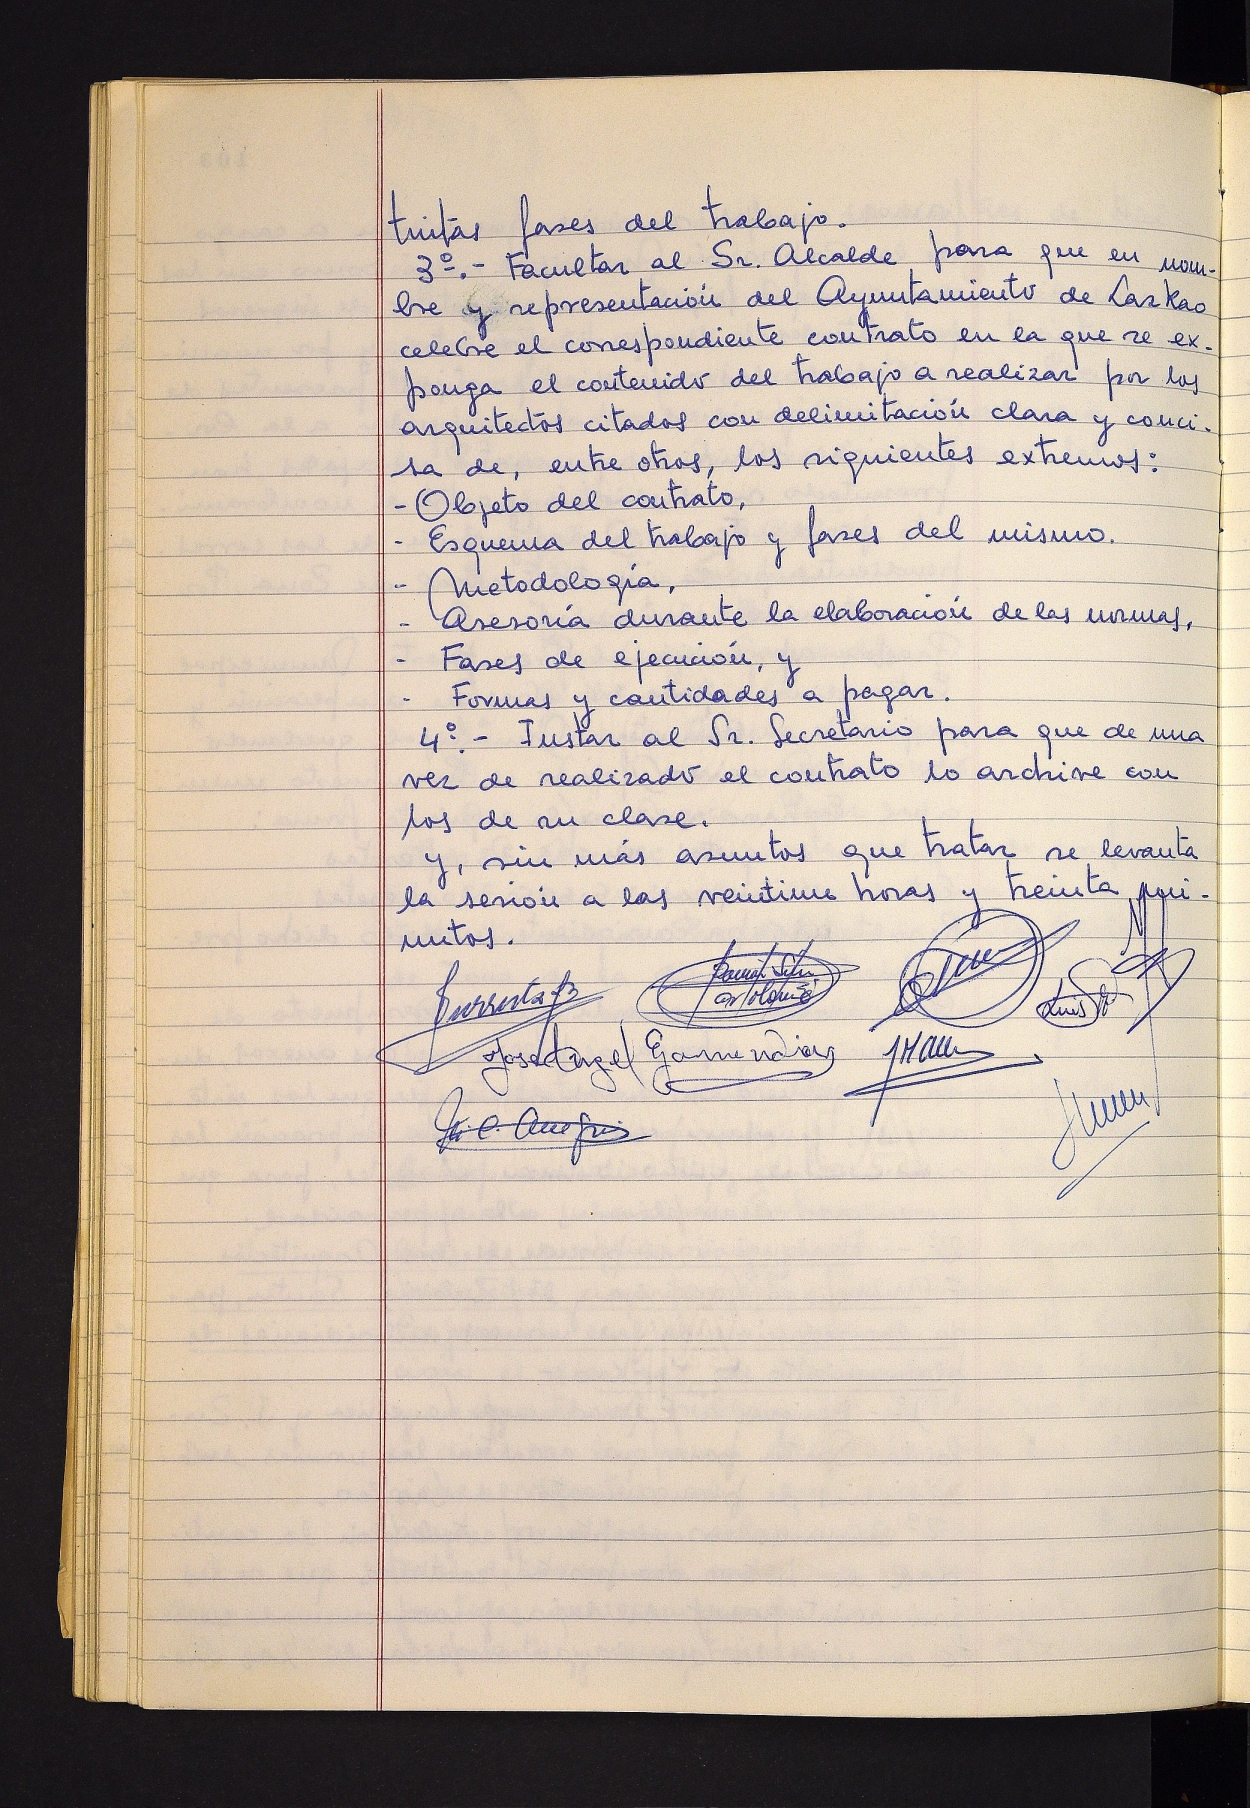 tintas fases del trabajo.
3º.- Facultar al Sr. Alcalde para que en nom-
bre y representación del Ayuntamiento de Lazkao
celebre el correspondiente contrato en la que se ex-
ponga el contenido del trabajo a realizar por los
arquitectos citados con delimitación clara y conci-
sa de, entre otros, los siguientes extremos:
- Objeto del contrato,
- Esquema del trabajo y fases del mismo.
- Metodología,
- Asesoría durante la elaboración de las normas,
- Fases de ejecución, y
- Formas y cantidades a pagar.
4º.- Instar al Sr. Secretario para que de una
vez de realizado el contrato lo archive con
los de su clase.
y, sin más asuntos que tratar se levanta
la sesión a las veintiun horas y treinta mi-
nutos.
Jose Angel Garmendia